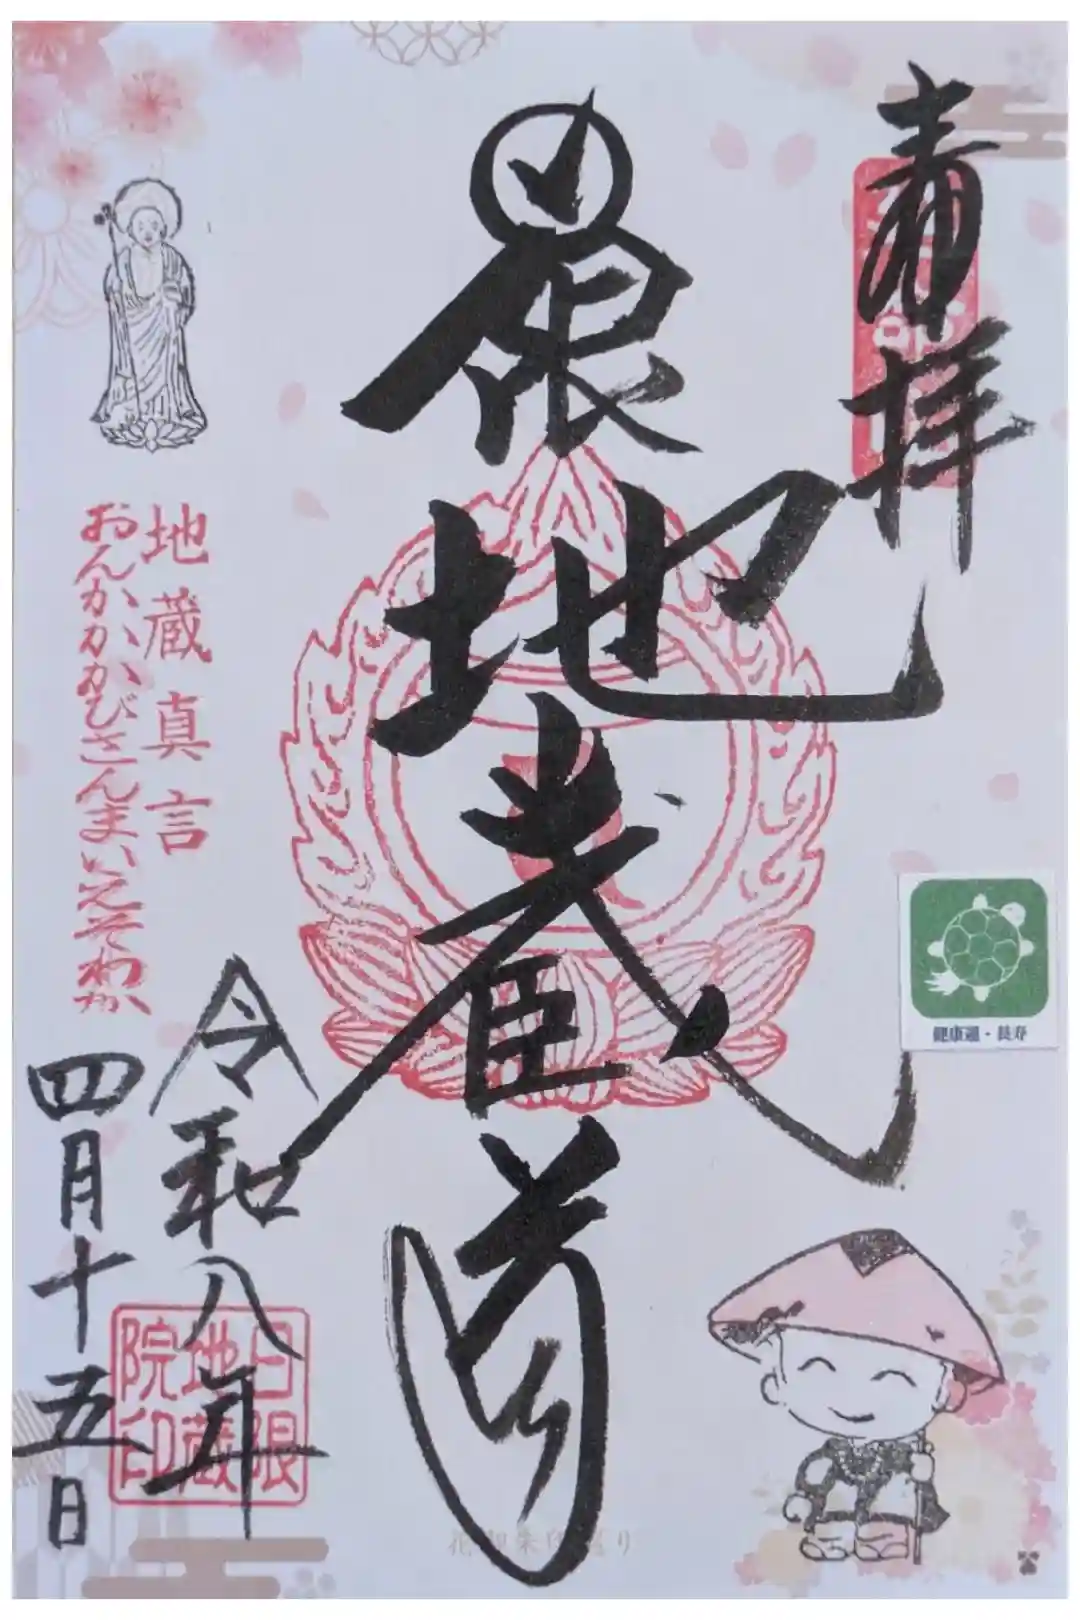 奉拝
日限
地蔵尊
地蔵真言
おんかかかびさんまいえそわか
令和八年
四月十五日
日限
地蔵
院印
健康運・長寿
花御朱印巡り